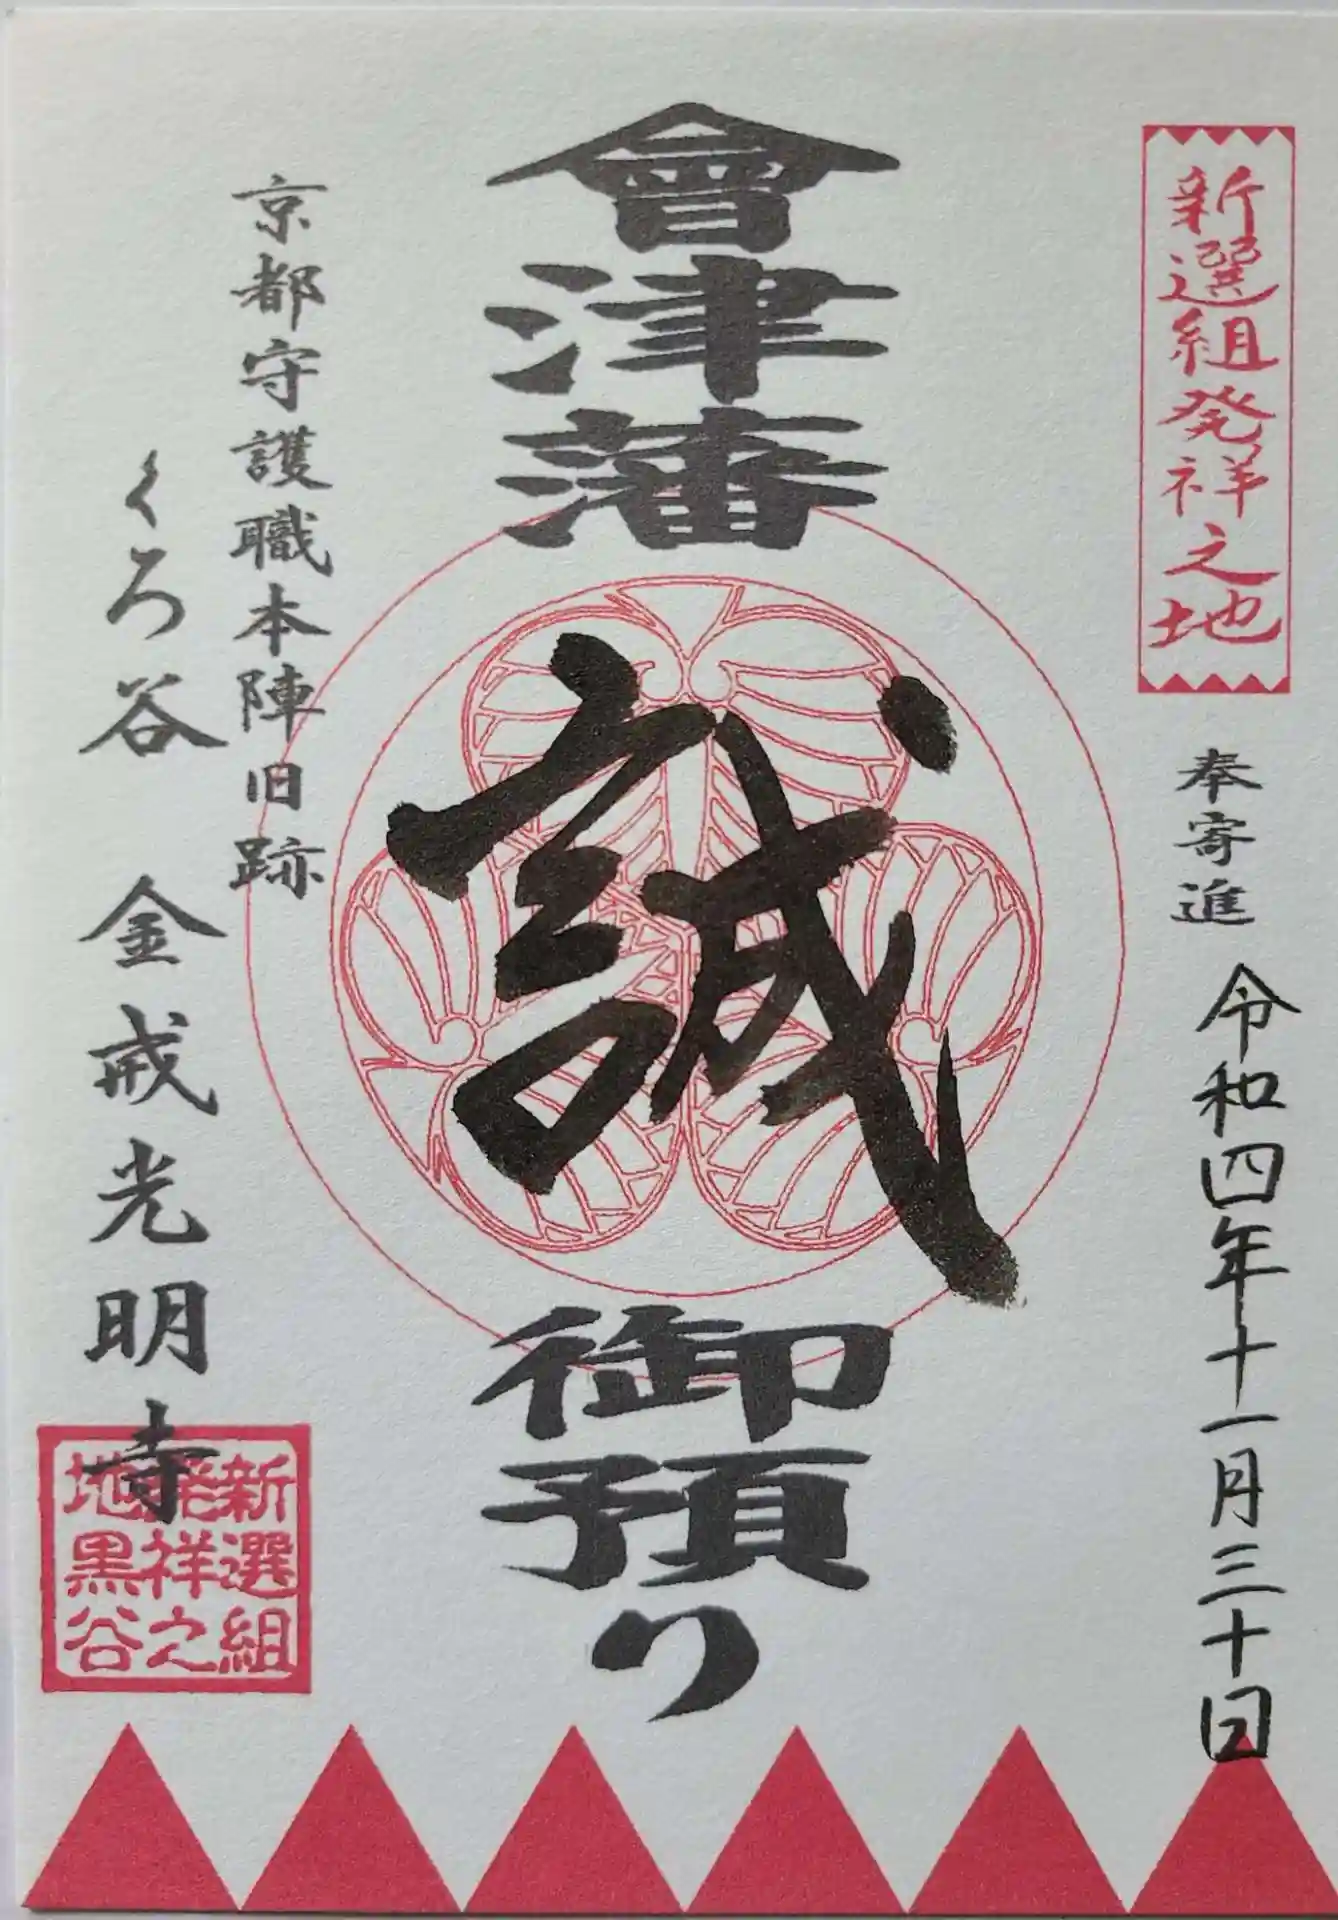 新選組発祥之地
奉寄進 令和四年十一月三十日
會津藩
誠
御預り
京都守護職本陣旧跡
くろ谷 金戒光明寺
新選組
発祥之
地黒谷